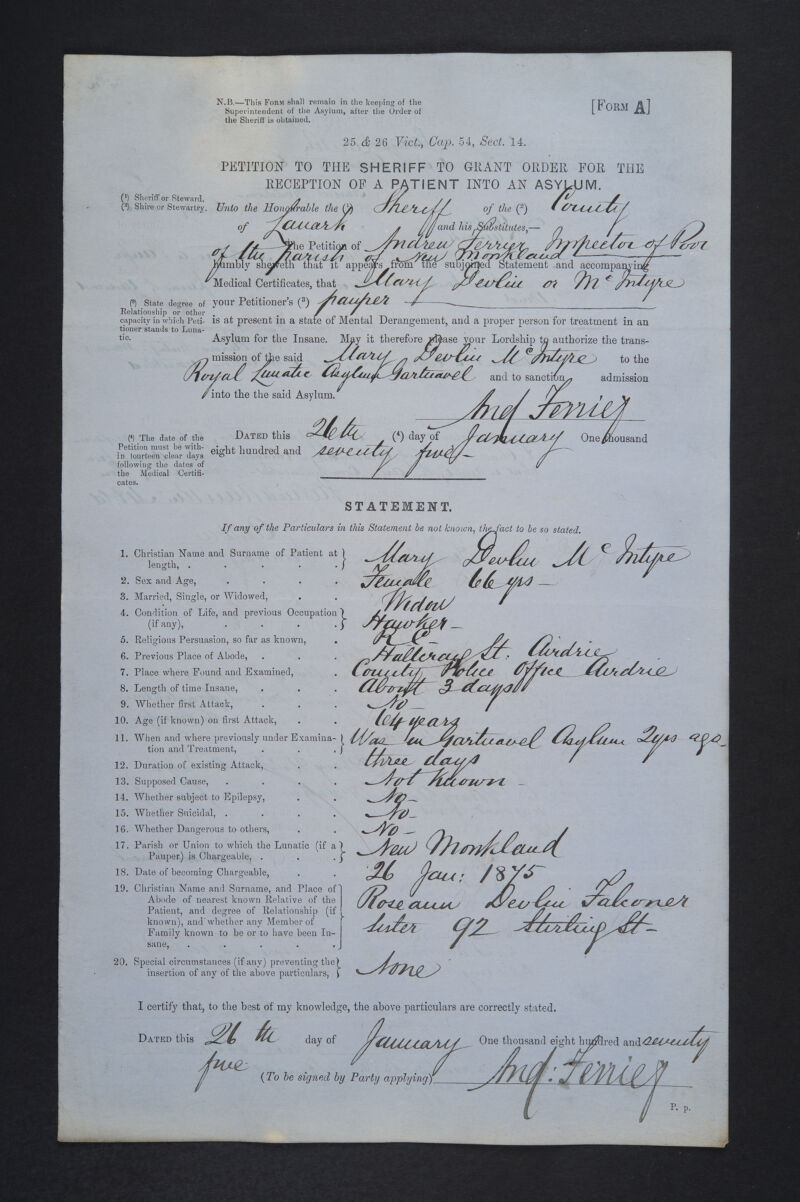 N.B.—This Form shall remain in the keeping of the
Superintendent of the Asylum, after the Order of
the Sheriff is obtained.
[Form A]
25 & 26 Vict., Cap. 54, Sect. 14.
PETITION TO THE SHERIFF TO GRANT ORDER FOR THE
RECEPTION OF A PATIENT INTO AN ASYLUM.
(1) Sheriff or Steward.
(2) Shire or Stewartry.
Unto the Honourable the (1) Sheriff of the (2) County
of Lanark and his Substitutes,—
The Petition of Andrew Ferrier Inspector of Poor
of the parish of New Monkland
humbly sheweth that it appears from the subjoined Statement and accompanying
Medical Certificates, that Mary Devlin or McIntyre
(3) State degree of
Relationship or other
capacity in which Peti-
tioner stands to Luna-
tic.
your Petitioner's (3) pauper
is at present in a state of Mental Derangement, and a proper person for treatment in an
Asylum for the Insane. May it therefore please your Lordship to authorize the trans-
mission of the said Mary Devlin McIntyre to the
Royal Lunatic Asylum Gartnavel and to sanction admission
into the the said Asylum.
And Ferrier
(4) The date of the
Petition must be with-
in fourteen clear days
following the dates of
the Medical Certifi-
cates.
Dated this 26th (4) day of January One thousand
eight hundred and seventy five
STATEMENT.
If any of the Particulars in this Statement be not known, the fact to be so stated.
1. Christian Name and Surname of Patient at
length, Mary Devlin McIntyre
2. Sex and Age, Female 66 yrs
3. Married, Single, or Widowed, Widow
4. Condition of Life, and previous Occupation
(if any), Hawker
5. Religious Persuasion, so far as known, R C
6. Previous Place of Abode, Hallcraig St. Airdrie
7. Place where Found and Examined, County Police Office Airdrie
8. Length of time Insane, About 3 days
9. Whether first Attack, No
10. Age (if known) on first Attack, 64 years
11. When and where previously under Examina-
tion and Treatment, Was in Gartnavel Asylum 2yrs ago
12. Duration of existing Attack, three days
13. Supposed Cause, Not known
14. Whether subject to Epilepsy, No
15. Whether Suicidal, No
16. Whether Dangerous to others, No
17. Parish or Union to which the Lunatic (if a
Pauper) is Chargeable, New Monkland
18. Date of becoming Chargeable, 26 Jan: 1875
19. Christian Name and Surname, and Place of
Abode of nearest known Relative of the
Patient, and degree of Relationship (if
known), and whether any Member of
Family known to be or to have been In-
sane, Roseann Devlin Falconer
Sister 92 Stirling St
20. Special circumstances (if any) preventing the
insertion of any of the above particulars, None
I certify that, to the best of my knowledge, the above particulars are correctly stated.
Dated this 26th day of January One thousand eight hundred and seventy
five
(To be signed by Party applying) And: Ferrier
P. p.